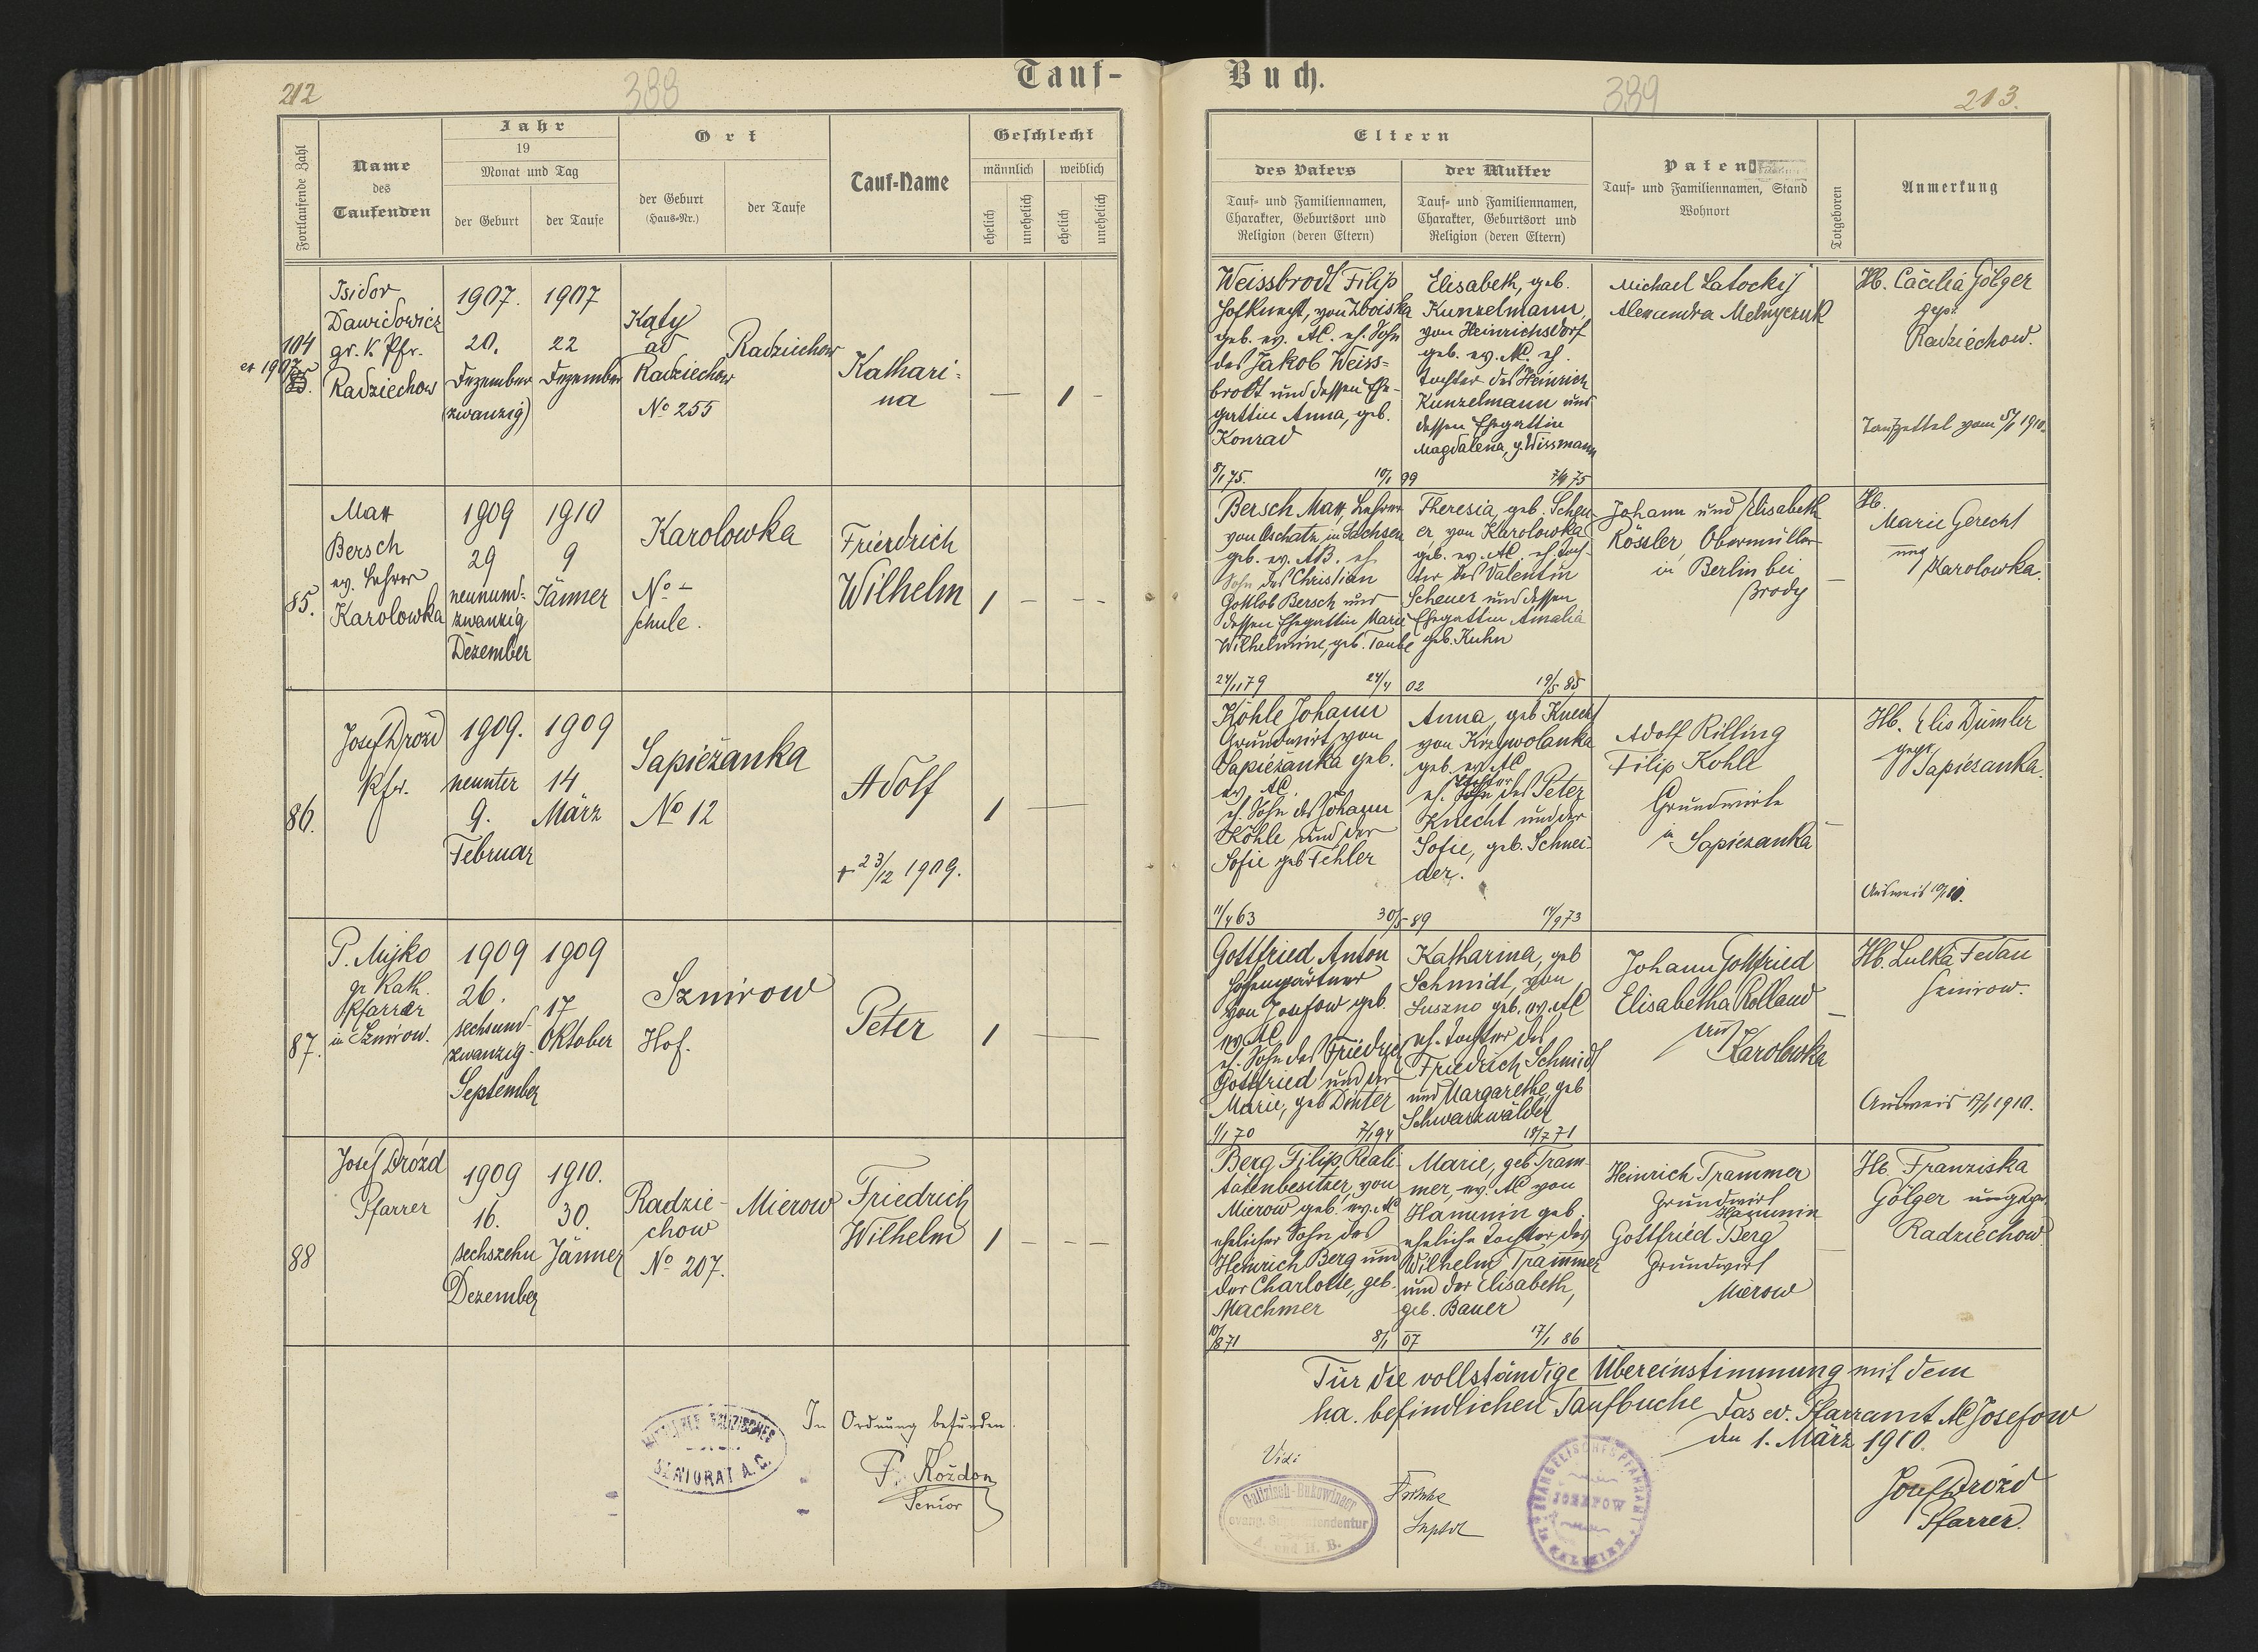 212
388
Tauf-
Fortlaufende Zahl
Name
des
Taufenden
Jahr
19
Monat und Tag
der Geburt
der Taufe
Ort
der Geburt
(Haus-Nr.)
der Taufe
Tauf-Name
Geschlecht
männlich
weiblich
ehelich
unehelich
ehelich
unehelich
104
1907
Isidor
Dawidowicz
gr. K. Pfr.
Radziechow
1907.
20.
Dezember
(zwanzig)
1907
22
Dezember
Katy
ad
Radziechow
No 255
Radziechow
Kathari-
na
— 1 -
85.
Max
Bersch
ev. Lehrer
Karolowka
1909
29
neunund-
zwanzig
Dezember
1910
9
Jänner
Karolowka
No -
Schule.
Friedrich
Wilhelm
1 - - -
86.
Josef Drózd
Pfr.
1909.
neunter
9.
Februar
1909
14
März
Sapiežanka
No 12
Adolf
+ 23/12 1909.
1 —
87.
P. Mijko
gr. Kath.
Pfarrer
in Sznirow.
1909
26.
sechsund-
zwanzig-
September
1909
17
Oktober
Sznirow
Hof.
Peter
1 —
88
Josef Drózd
Pfarrer
1909
16.
sechszehn
Dezember
1910.
30.
Jänner
Radzie-
chow
No 207.
Mierow
Friedrich
Wilhelm
1 - - -
SENIORAT A. C.
In Ordnung befunden.
F. Kożdon
Senior
Buch.
389
213.
Eltern
des Vaters
Tauf- und Familiennamen,
Charakter, Geburtsort und
Religion (deren Eltern)
der Mutter
Tauf- und Familiennamen,
Charakter, Geburtsort und
Religion (deren Eltern)
Paten
Tauf- und Familiennamen, Stand
Wohnort
Totgeboren
Anmerkung
Weissbrodt Filip
Hofknecht, von Zboiska
geb. ev. AC. eh. Sohn
des Jakob Weiss-
brodt und dessen Ehe-
gattin Anna, geb.
Konrad
8/1 75.
10/1 99
Elisabeth, geb.
Kunzelmann,
von Heinrichsdorf
geb. ev. AC. eh.
Tochter des Heinrich
Kunzelmann und
dessen Ehegattin
Magdalena, g. Wissmann
Michael Latockij
Alexandra Melnyczuk
Hb. Cäcilia Gölger
gepr.
Radziechow.
Taufzettel vom 5/1 1910.
Bersch Max, Lehrer
von Oschatz in Sachsen
geb. ev. AB. eh
Sohn des Christian
Gottlob Bersch und
dessen Ehegattin Marie
Wilhelmine, geb. Taube
24/11 79
24/4 02
Theresia, geb. Scheu-
er, von Karolowka
geb. ev. AC. eh. Toch-
ter des Valentin
Scheuer und dessen
Ehegattin Amalia
geb. Kuhn
19/5 85
Johann und Elisabeth
Kössler, Obermüller
in Berlin bei
Brody
—
Hb.
Marie Gerecht
ung
Karolowka.
Köhle Johann
Grundwirt, von
Sapiežanka geb.
ev. AC.
eh. Sohn des Johann
Köhle und der
Sofie geb Fehler
11/4 63
30/5 89
Anna, geb Knecht
von Krzywolanka
geb. ev. AC
Tochter
eh. des Peter
Knecht und der
Sofie, geb. Schnei-
der.
14/9 73
Adolf Rilling
Filip Kohle
Grundwirte
in Sapiezanka
—
Hb. Elis Dümler
gepr.
Sapiesanka.
Ausweis
Gottfried Anton
von Josefow geb.
ev. AC
eh. Sohn des Friedrich
Gottfried und der
Marie, geb Dinter
1/1 70
7/1 94
Katharina, geb
Schmidt, von
Suszno geb. ev. AC
eh. Tochter des
Friedrich Schmidt
und Margarethe, geb
Schwarzwälder
18/7 71
Johann Gottfried
Elisabetha Rolland
aus
Karolowka
—
Hb. Lulka Fedan
Sznirow.
Ausweis 17/1 1910.
Berg Filip, Reali-
tätenbesitzer, von
Mierow geb. ev. AC
ehelicher Sohn des
Heinrich Berg und
der Charlotte, geb.
Machmer
10/8 71
8/1 07
Marie, geb Tram-
mer, ev. AC von
Hanunin geb.
eheliche Tochter des
Wilhelm Trammer
und der Elisabeth,
geb. Bauer
17/1 86
Heinrich Trammer
Grundwirt
Hanunin
Gottfried Berg
Grundwirt
Mierow
—
Hb Franziska
Gölger ungepr.
Radziechow
Für die vollständige Übereinstimmung mit dem
ha. befindlichen Taufbuche Das ev. Pfarramt AC Josefow
den 1. März 1910.
Josef Drózd
Pfarrer.
Vidi
Galizisch-Bukowinaer
evang. Superintendentur
A. und H. B.
Suptdt
EVANGELISCHES PFARRAMT
JOZEFOW
in GALIZIEN